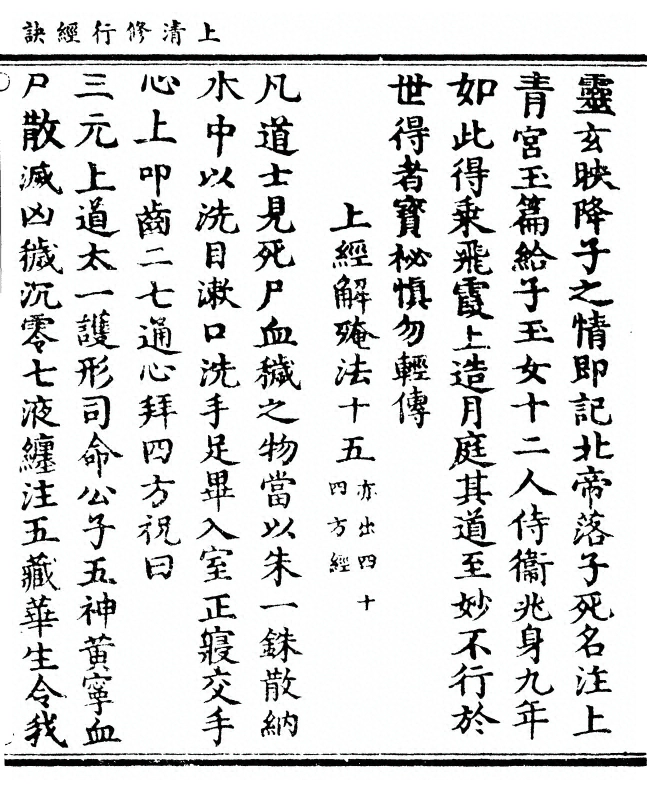 上清修行經訣
靈玄映降子之情即記北帝落子死名注上
青宮玉篇給子玉女十二人侍衞兆身九年
如此得乗飛霞上造月庭其道至妙不行於
世得者寳祕慎勿輕傳
上經解殗法十五亦出四十四方經
凡道士見死尸血穢之物當以朱一銖散納
水中以洗目漱口洗手足畢入室正寢交手
心上叩齒二七通心拜四方祝曰
三元上道太一護形司命公子五神黄寧血
尸散滅凶穢沉零七液纏注五藏華生令我